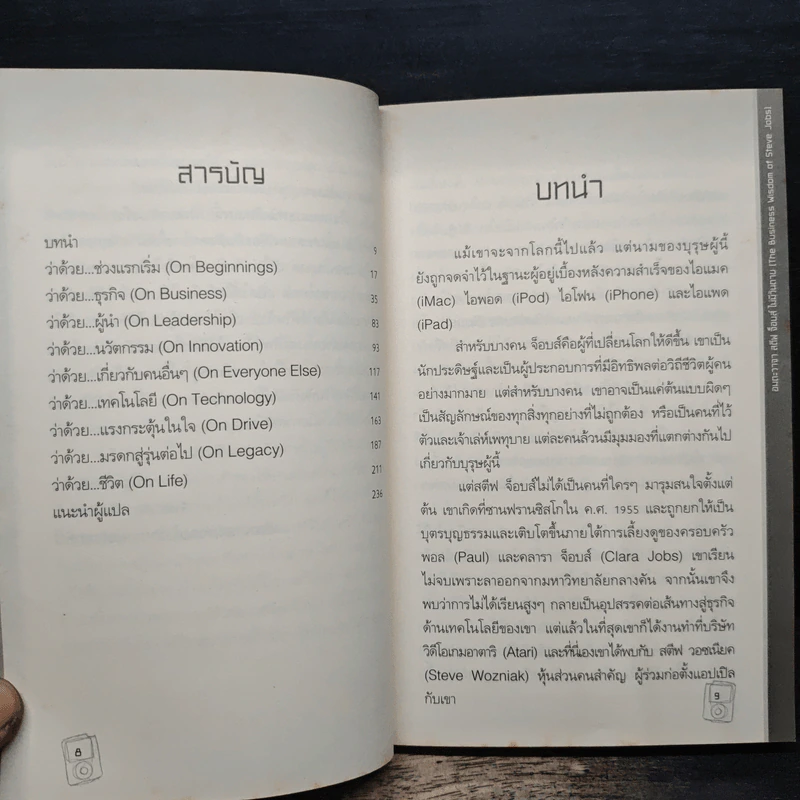 สารบัญ
บทนำ 9
ว่าด้วย...ช่วงแรกเริ่ม (On Beginnings) 17
ว่าด้วย...ธุรกิจ (On Business) 35
ว่าด้วย...ผู้นำ (On Leadership) 83
ว่าด้วย...นวัตกรรม (On Innovation) 93
ว่าด้วย...เกี่ยวกับคนอื่นๆ (On Everyone Else) 117
ว่าด้วย...เทคโนโลยี (On Technology) 141
ว่าด้วย...แรงกระตุ้นในใจ (On Drive) 163
ว่าด้วย...มรดกสู่รุ่นต่อไป (On Legacy) 187
ว่าด้วย...ชีวิต (On Life) 211
แนะนำผู้แปล 236
8
บทนำ
แม้เขาจะจากโลกนี้ไปแล้ว แต่นามของบุรุษผู้นี้
ยังถูกจดจำไว้ในฐานะผู้อยู่เบื้องหลังความสำเร็จของไอแมค
(iMac) ไอพอด (iPod) ไอโฟน (iPhone) และไอแพด
(iPad)
สำหรับบางคน จ็อบส์คือผู้ที่เปลี่ยนโลกให้ดีขึ้น เขาเป็น
นักประดิษฐ์และเป็นผู้ประกอบการที่มีอิทธิพลต่อวิถีชีวิตผู้คน
อย่างมากมาย แต่สำหรับบางคน เขาอาจเป็นแค่ต้นแบบผิดๆ
เป็นสัญลักษณ์ของทุกสิ่งทุกอย่างที่ไม่ถูกต้อง หรือเป็นคนที่ไว้
ตัวและเจ้าเล่ห์เพทุบาย แต่ละคนล้วนมีมุมมองที่แตกต่างกันไป
เกี่ยวกับบุรุษผู้นี้
แต่สตีฟ จ็อบส์ไม่ได้เป็นคนที่ใครๆ มารุมสนใจตั้งแต่
ต้น เขาเกิดที่ซานฟรานซิสโกใน ค.ศ. 1955 และถูกยกให้เป็น
บุตรบุญธรรมและเติบโตขึ้นภายใต้การเลี้ยงดูของครอบครัว
พอล (Paul) และคลารา จ็อบส์ (Clara Jobs) เขาเรียน
ไม่จบเพราะลาออกจากมหาวิทยาลัยกลางคัน จากนั้นเขาจึง
พบว่าการไม่ได้เรียนสูงๆ กลายเป็นอุปสรรคต่อเส้นทางสู่ธุรกิจ
ด้านเทคโนโลยีของเขา แต่แล้วในที่สุดเขาก็ได้งานทำที่บริษัท
วิดีโอเกมอาตาริ (Atari) และที่นี่เองเขาได้พบกับ สตีฟ วอซเนียค
(Steve Wozniak) หุ้นส่วนคนสำคัญ ผู้ร่วมก่อตั้งแอปเปิล
กับเขา
9
อมตะวาจา สตีฟ จ็อบส์ ไม่มีวันตาย (The Business Wisdom of Steve Jobs)